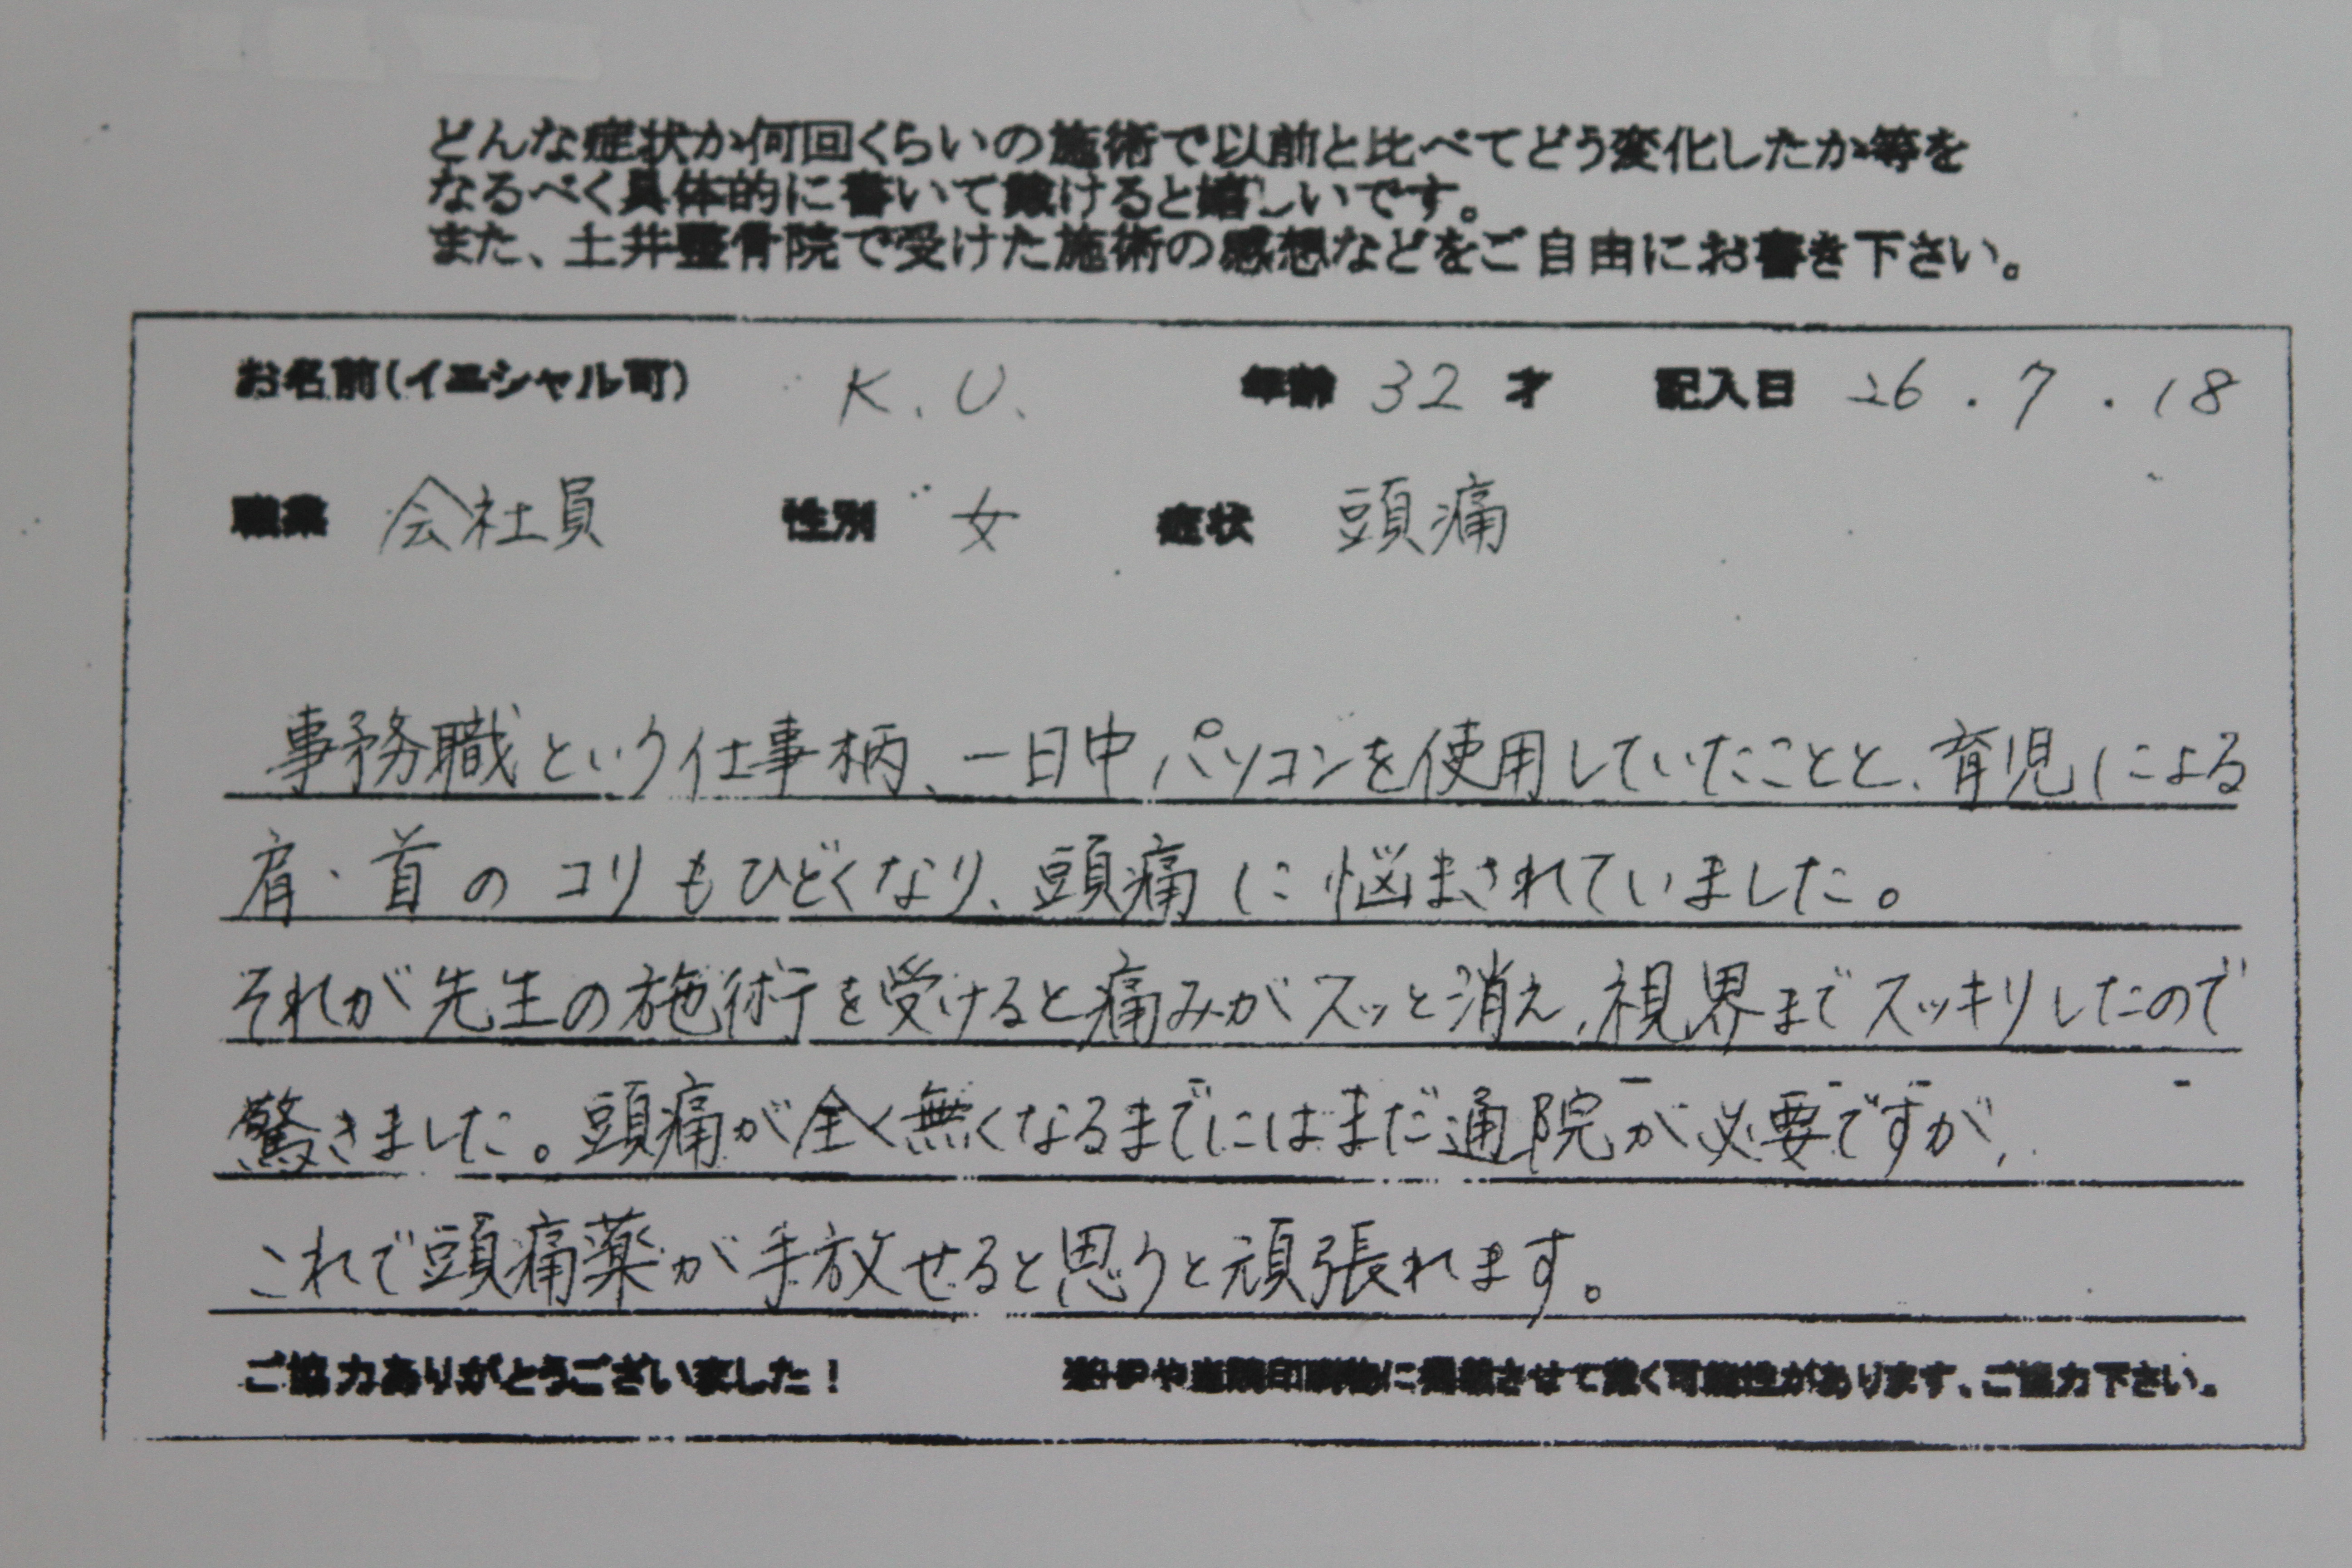 どんな症状か何回くらいの施術で以前と比べてどう変化したか等を
なるべく具体的に書いて戴けると嬉しいです。
また、土井整骨院で受けた施術の感想などをご自由にお書き下さい。
お名前(イニシャル可) K.U. 年齢 32 才 記入日 26.7.18
職業 会社員 性別 女 症状 頭痛
事務職という仕事柄、一日中パソコンを使用していたことと、育児による
肩・首のコリもひどくなり、頭痛に悩まされていました。
それが先生の施術を受けると痛みがスッと消え、視界までスッキリしたので
驚きました。頭痛が全く無くなるまでにはまだ通院が必要ですが、
これで頭痛薬が手放せると思うと頑張れます。
ご協力ありがとうございました! や当院印刷物に掲載させて戴く可能性があります、ご協力下さい。